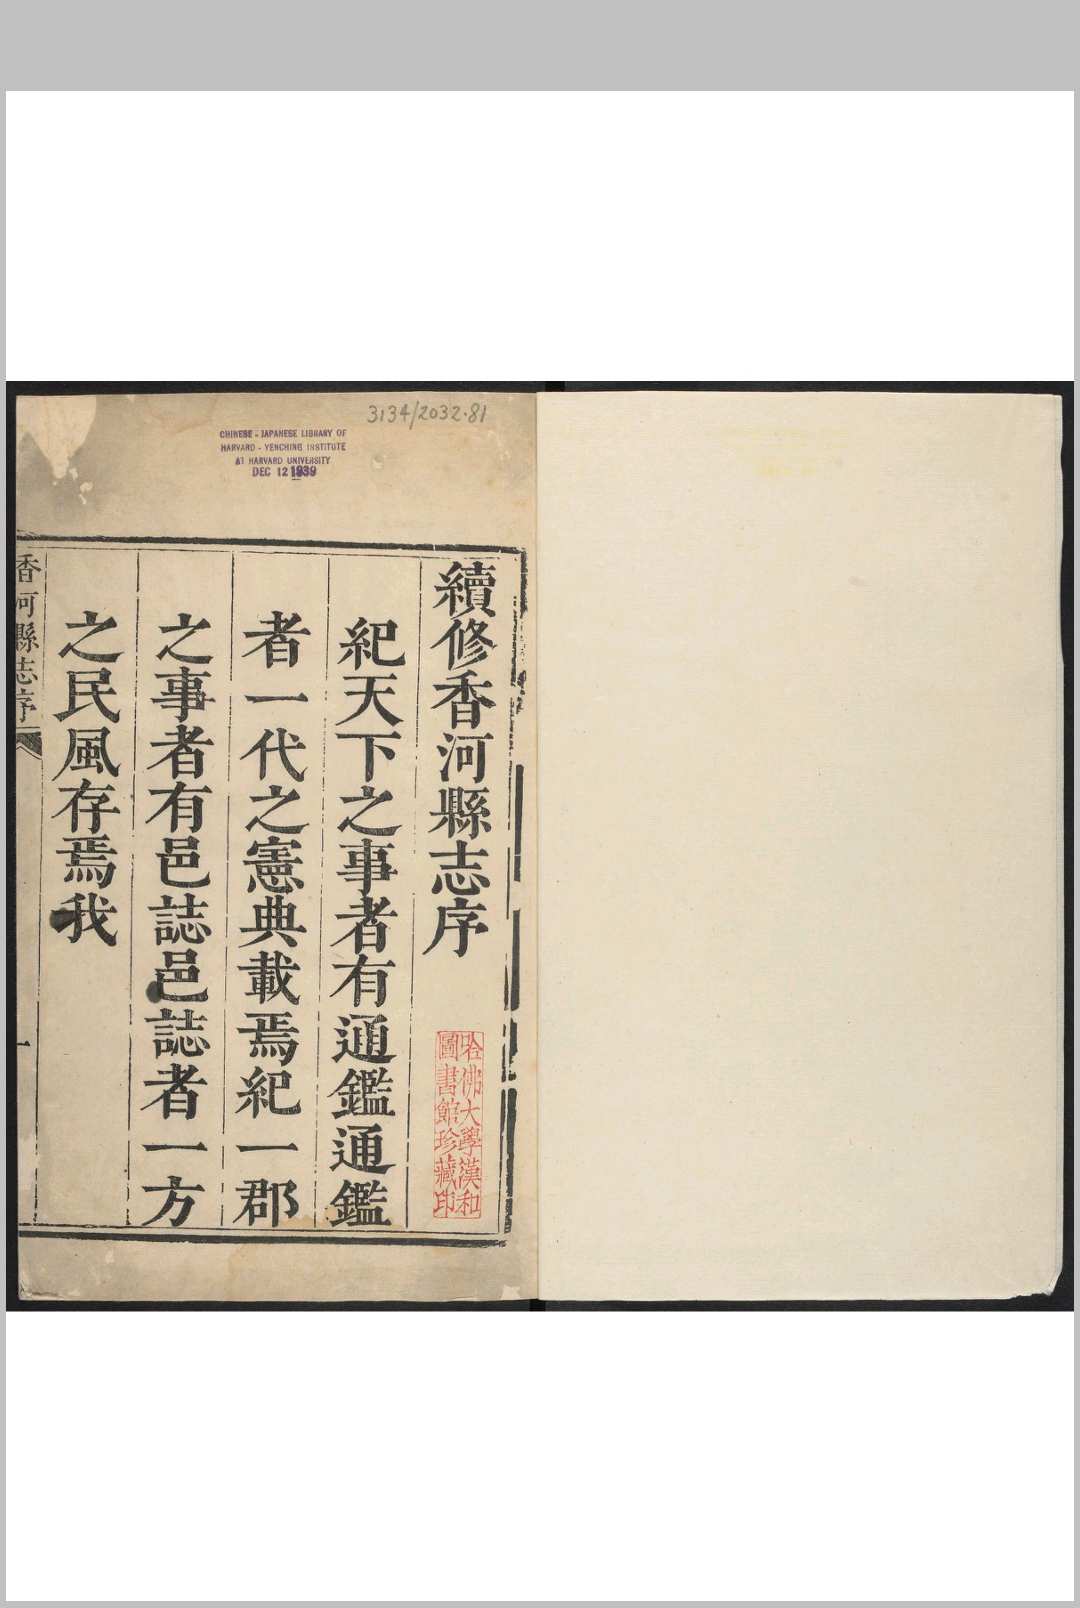 3134/2032.81
CHINESE - JAPANESE LIBRARY OF
HARVARD - YENCHING INSTITUTE
AT HARVARD UNIVERSITY
DEC 12 1939
續修香河縣志序
哈佛大學漢和
圖書館珍藏印
紀天下之事者有通鑑通鑑
者一代之憲典載焉紀一郡
之事者有邑誌邑誌者一方
之民風存焉我
香河縣志序
一